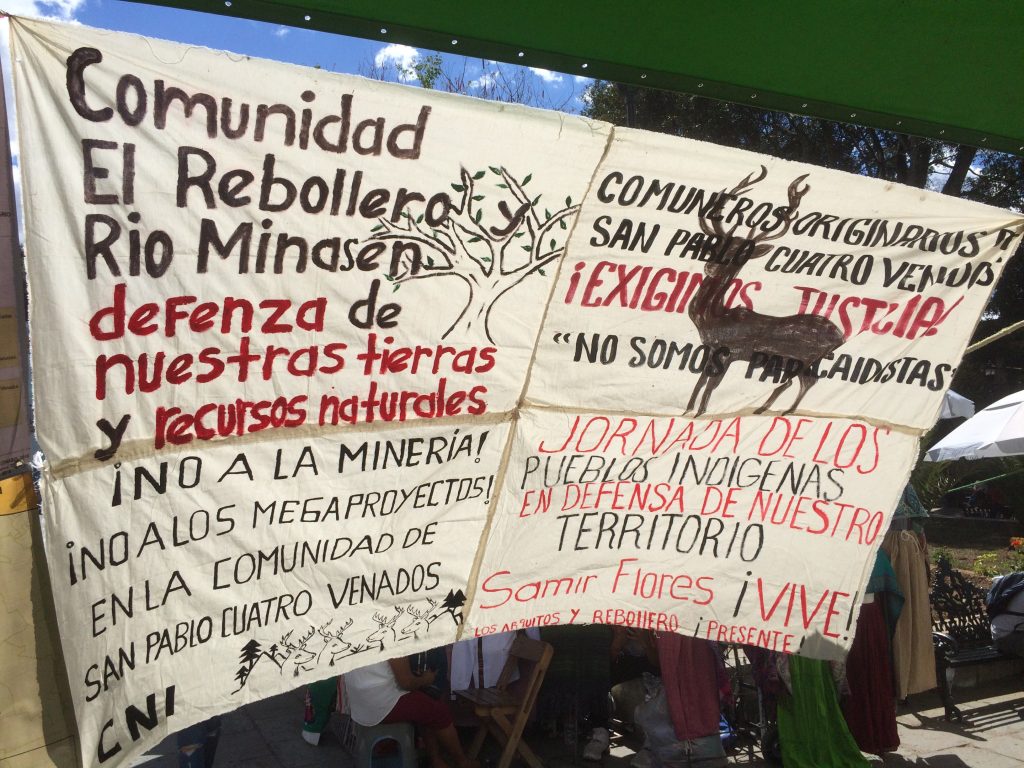 Comunidad
El Rebollero y
Rio Minasén
defenza de
nuestras tierras
y recursos naturales
COMUNEROS ORIGINADOS
SAN PABLO CUATRO VENADOS
¡EXIGIMOS JUSTICIA!
"NO SOMOS PARACAIDISTAS"
¡NO A LA MINERÍA!
¡NO A LOS MEGAPROYECTOS!
EN LA COMUNIDAD DE
SAN PABLO CUATRO VENADOS
CNI
JORNADA DE LOS
PUEBLOS INDIGENAS
EN DEFENSA DE NUESTRO
TERRITORIO
Samir Flores ¡VIVE!
LOS ARQUITOS Y REBOLLERO ¡PRESENTE!